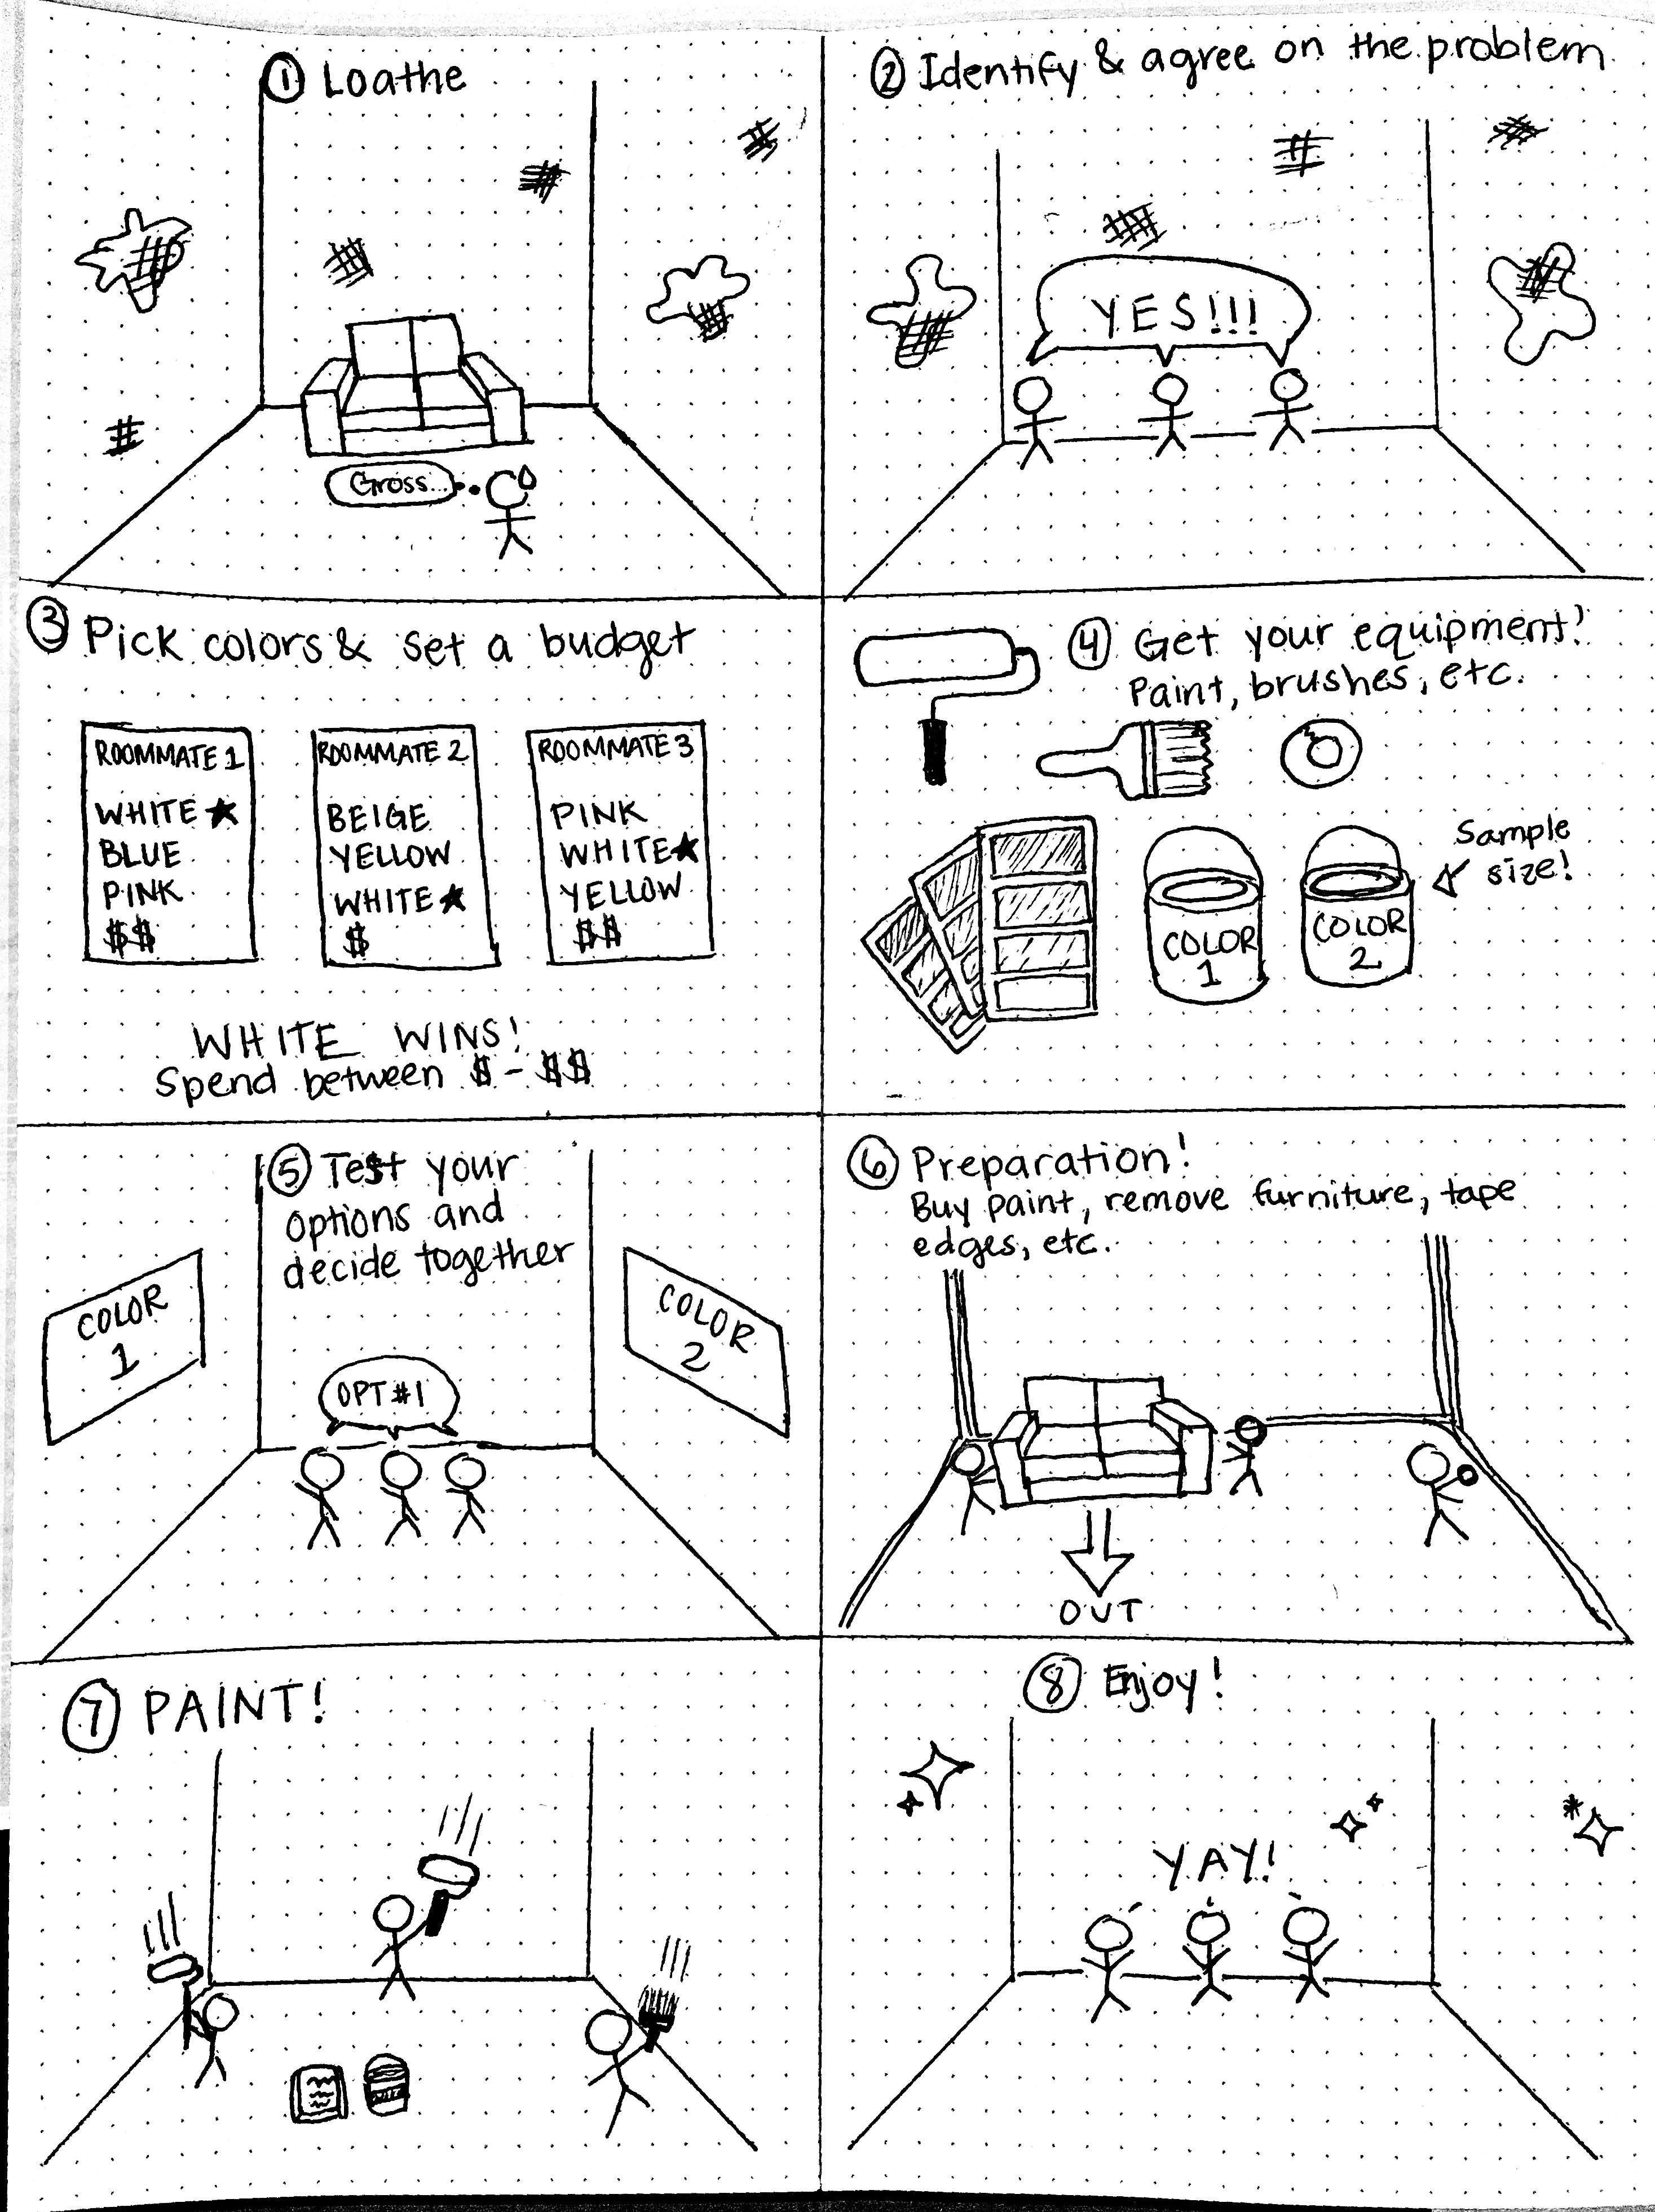 ① Loathe
Gross...
② Identify & agree on the problem
YES!!!
③ Pick colors & set a budget
ROOMMATE 1
WHITE ★
BLUE
PINK
$$
ROOMMATE 2
BEIGE
YELLOW
WHITE ★
$
ROOMMATE 3
PINK
WHITE ★
YELLOW
$$
WHITE WINS!
Spend between $ - $$
④ Get your equipment!
Paint, brushes, etc.
Sample
size!
COLOR
1
COLOR
2
⑤ Test your
options and
decide together
COLOR
1
COLOR
2
OPT #1
⑥ Preparation!
Buy paint, remove furniture, tape
edges, etc.
OUT
⑦ PAINT!
⑧ Enjoy!
YAY!